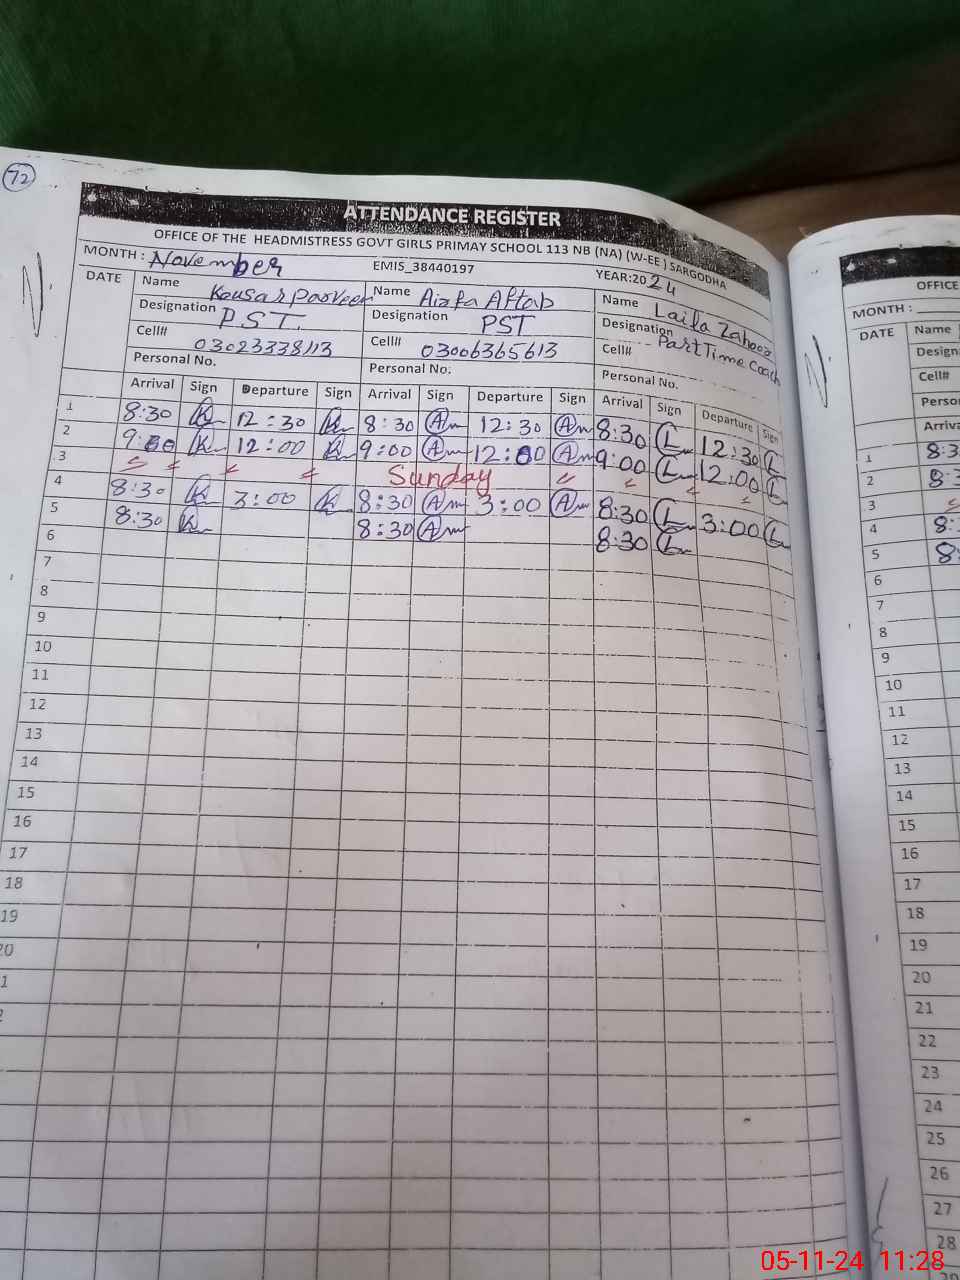 72
ATTENDANCE REGISTER
OFFICE OF THE HEADMISTRESS GOVT GIRLS PRIMAY SCHOOL 113 NB (NA) (W-EE ) SARGODHA
MONTH : November EMIS_38440197 YEAR:2024
DATE Name Kousar Parveen Name Aizfa Aftab Name Laila Zahoor
Designation P.S.T. Designation PST Designation Part Time Coach
Cell# 03023338113 Cell# 03006365613 Cell#
Personal No. Personal No. Personal No.
Arrival Sign Departure Sign Arrival Sign Departure Sign Arrival Sign Departure Sign
1 8:30 K 12:30 K 8:30 Am 12:30 Am 8:30 L 12:30 L
2 9:00 K 12:00 K 9:00 Am 12:00 Am 9:00 L 12:00 L
3 Sunday
4 8:30 K 3:00 K 8:30 Am 3:00 Am 8:30 L 3:00 L
5 8:30 K 8:30 Am 8:30 L
6
7
8
9
10
11
12
13
14
15
16
17
18
19
20
1
2
OFFICE
MONTH :
DATE Name
Design
Cell#
Perso
Arriva
1 8:3
2 8:3
3
4 8:
5 8:
6
7
8
9
10
11
12
13
14
15
16
17
18
19
20
21
22
23
24
25
26
27
28
05-11-24 11:28